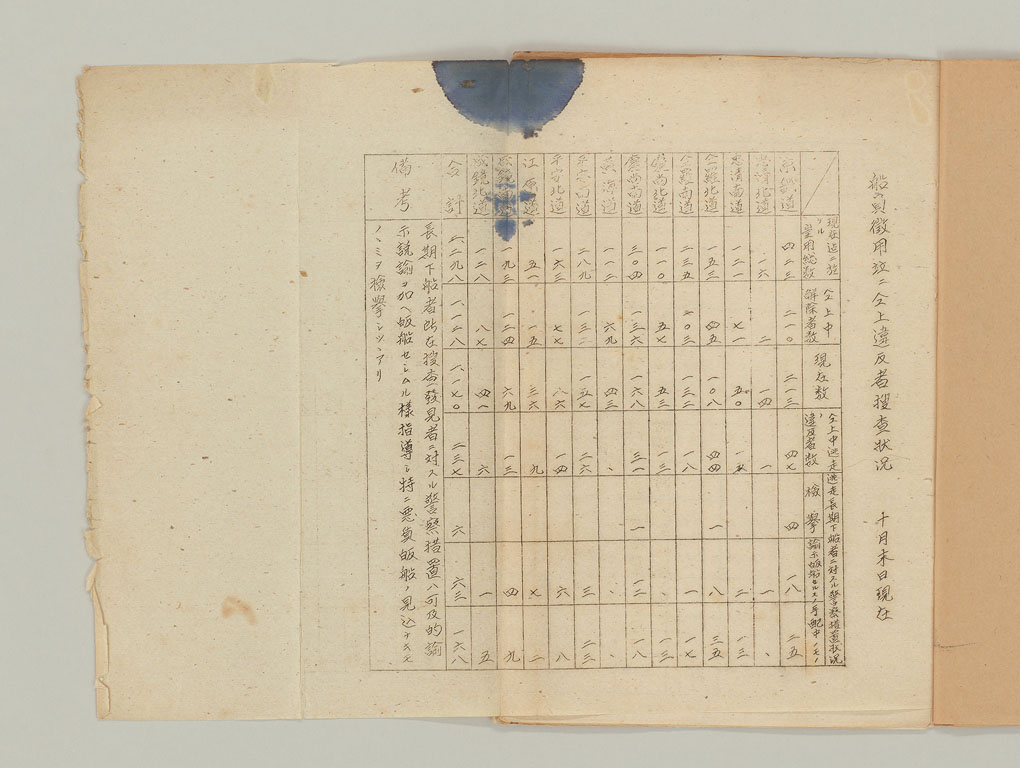 船員徴用竝ニ仝上違反者捜査状況 十月末日現在
現在迄ニ於ケル
徴用総数
仝上中
解除者数
現在数
仝上中逃走
違反者数
逃走長期下船者ニ対スル警察措置状況
検挙
諭示皈船セルモノ
手配中ノモノ
京畿道 四二三 二一〇 二一三 四七 四 一八 二五
忠清北道 一六 二 一四 一 一 、
忠清南道 一二一 七一 五〇 一五 二 一三
全羅北道 一五三 四五 一〇八 四四 一 八 三五
全羅南道 二三五 一〇三 一三二 一八 一 一七
慶尚北道 一一〇 五七 五三 一三 、 一三
慶尚南道 三〇四 一三六 一六八 三一 一 一二 一八
黄海道 一一二 六九 四三 、 、 、
平安南道 二八九 一三二 一五七 二六 三 二三
平安北道 一六三 七七 八六 一四 六 八
江原道 五一 一五 三六 九 七 二
咸鏡南道 一九三 一二四 六九 一三 四 九
咸鏡北道 一二八 八七 四一 六 一 五
合計 二、二九八 一、一二八 一、一七〇 二三七 六 六三 一六八
備考
長期下船者所在捜査発見者ニ対スル警察措置ハ可及的諭
示説諭ヲ加ヘ皈船セシムル様指導シ特ニ悪質皈船ノ見込ナキモ
ノノミヲ検挙シツツアリ